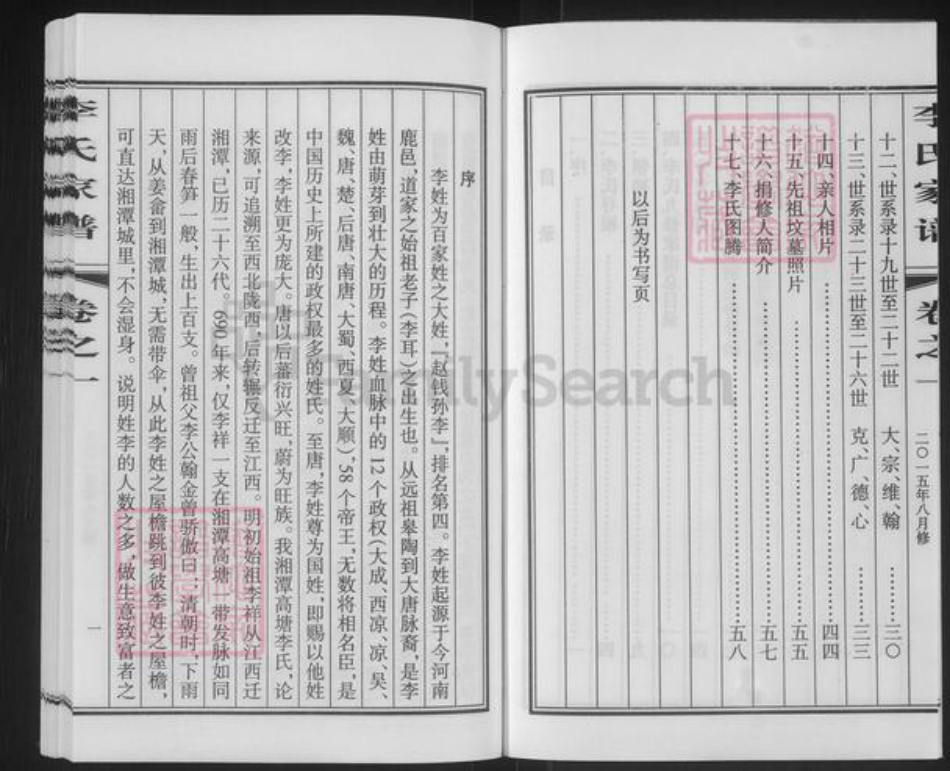 李氏家谱 卷之一 二〇一五年八月修
十二、世系录十九世至二十二世 大、宗、维、翰 三〇
十三、世系录二十三世至二十六世 克、广、德、心 三三
十四、亲人相片 四四
十五、先祖坟墓照片 五五
十六、捐修人简介 五七
十七、李氏图腾 五八
以后为书写页
序
李姓为百家姓之大姓,『赵钱孙李』,排名第四。李姓起源于今河南
鹿邑,道家之始祖老子(李耳)之出生也。从远祖皋陶到大唐脉裔,是李
姓由萌芽到壮大的历程。李姓血脉中的12个政权(大成、西凉、凉、吴、
魏、唐、楚、后唐、南唐、大蜀、西夏、大顺),58个帝王,无数将相名臣,是
中国历史上所建的政权最多的姓氏。至唐,李姓尊为国姓,即赐以他姓
改李,李姓更为庞大。唐以后蕃衍兴旺,蔚为旺族。我湘潭高塘李氏,论
来源,可追溯至西北陇西,后转辗反迁至江西。明初始祖李祥从江西迁
湘潭,已历二十六代。690年来,仅李祥一支在湘潭高塘一带发脉如同
雨后春笋一般,生出上百支。曾祖父李公翰金曾骄傲曰:清朝时,下雨
天,从姜畲到湘潭城,无需带伞,从此李姓之屋檐跳到彼李姓之屋檐,
可直达湘潭城里,不会湿身。说明姓李的人数之多,做生意致富者之
李氏家谱 卷之一 一
FamilySearch